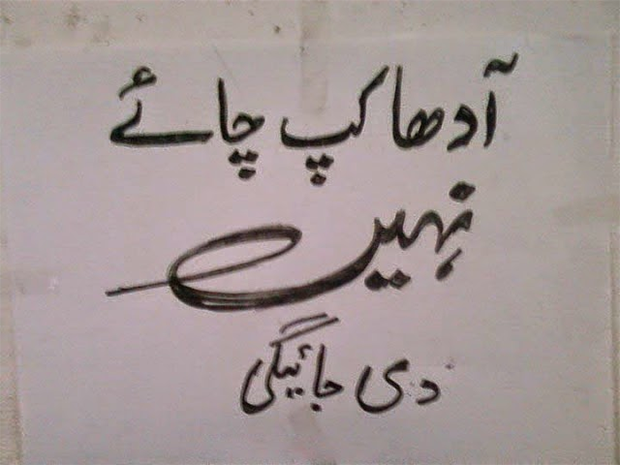 آدھا کپ چائے
نہیں
دی جائیگی